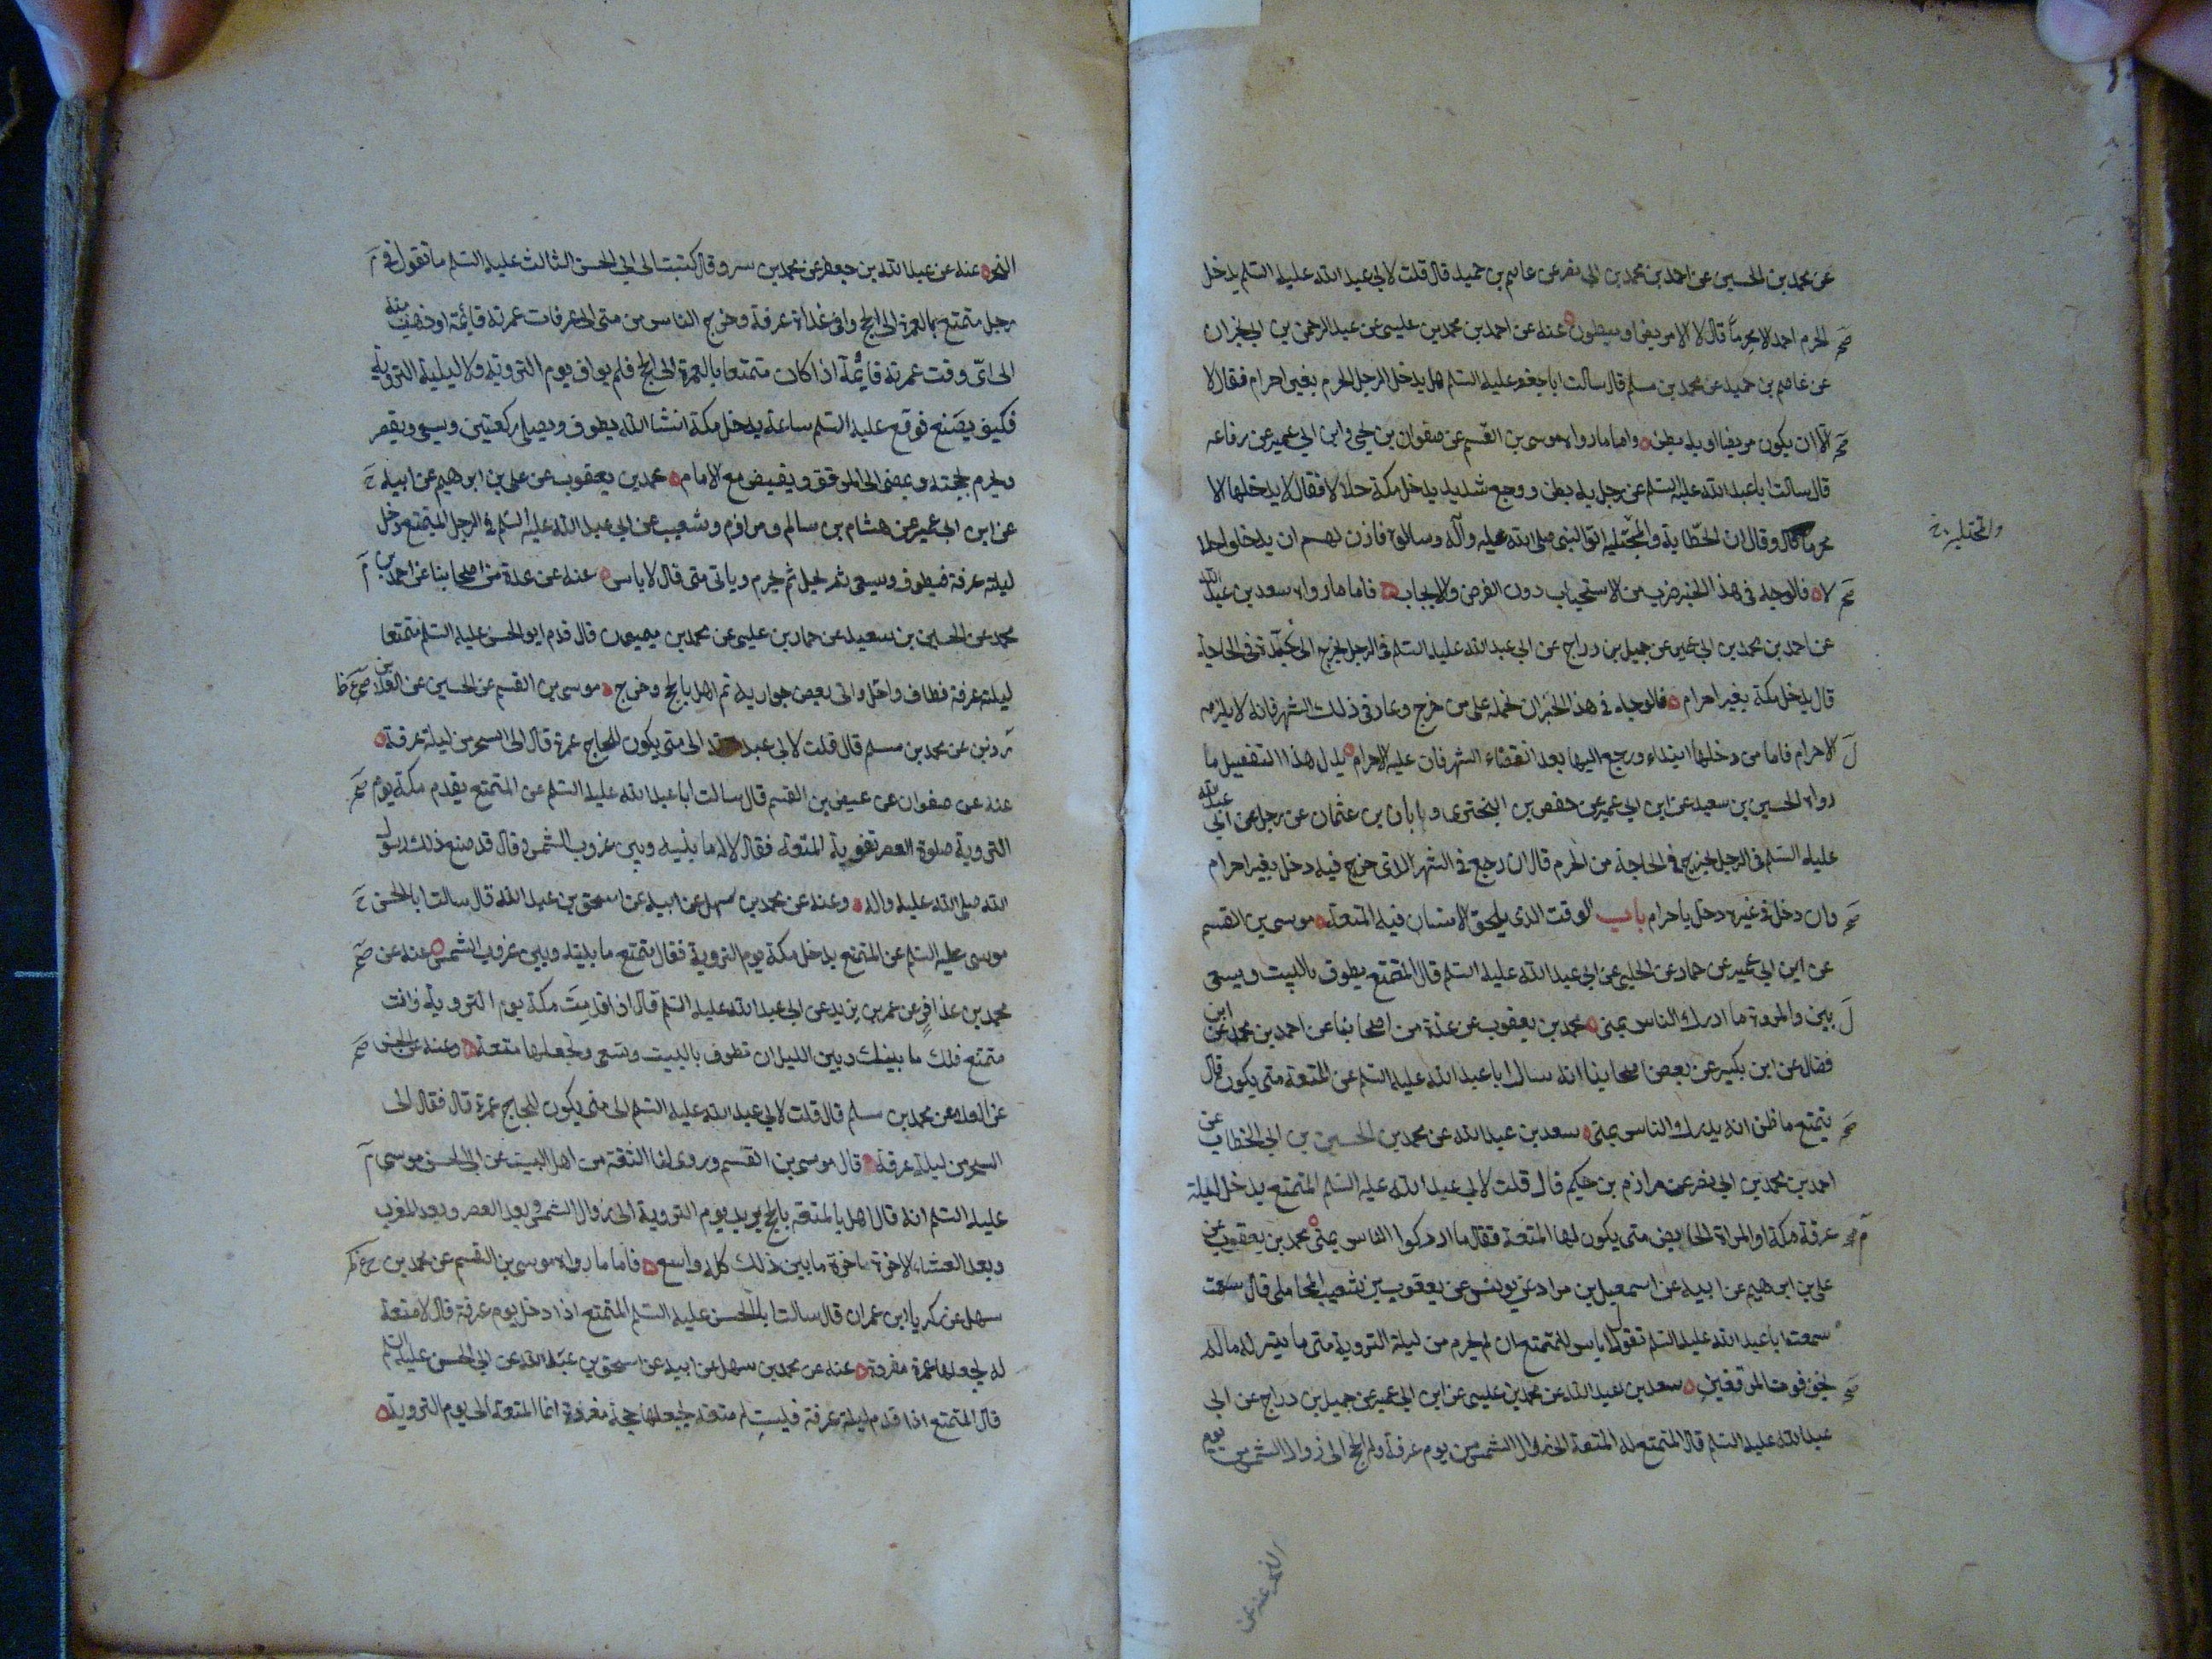 عن محمد بن الحسين عن احمد بن محمد بن ابي نصر عن عاصم بن حميد قال قلت لابي عبد الله عليه السلم يدخل
صح الحرم احد الا محرماً قال لا الا مريض او مبطون عنه عن احمد بن محمد بن عليسى عن عبد الرحمن بن ابي نجران
عن عاصم بن حميد عن محمد بن مسلم قال سالت ابا جعفر عليه السلم هل يدخل الرجل الحرم بغير احرام فقال لا
صح الا ان يكون مريضا او به بطن واما ما رواه موسى بن القسم عن صفوان بن يحيى وابن ابي عمير عن رفاعه
قال سالت ابا عبد الله عليه السلم عن رجل به بطن ووجع شديد يدخل مكة حلالا فقال لا يدخلها الا
محرما وقال ان الحطابة والمجتلبة اتوا النبي صلى الله عليه وآله وسالوه فاذن لهم ان يدخلوا حلا
والمختلية خ
صح لا فالوجه في هذا الخبر ضرب من الاستحباب دون الفرض والايجاب فاما ما رواه سعد بن عبد الله
عن احمد بن محمد بن ابي عمير عن جميل بن دراج عن ابي عبد الله عليه السلم في الرجل يخرج الى جدة في الحاجة
قال يدخل مكة بغير احرام فالوجه في هذا الخبر ان نحمله على من خرج وعاد في ذلك الشهر فانه لا يلزمه
ل الاحرام فاما من دخلها ابتداء ورجع اليها بعد انقضاء الشهر فان عليه الاحرام يدل هذا التفصيل ما
رواه الحسين بن سعيد عن ابن ابي عمير عن حفص بن البختري وابان بن عثمان عن رجل عن ابي عبد الله
عليه السلم في الرجل يخرج في الحاجة من الحرم قال ان رجع في الشهر الذي خرج فيه دخل بغير احرام
صح وان دخل في غيره دخل باحرام باب الوقت الذي يلحق الانسان فيه المتعة موسى بن القسم
عن ابن ابي عمير عن حماد عن الحلبي عن ابي عبد الله عليه السلم قال المتمتع يطوف بالبيت ويسعى
ل بين والمروة ما ادرك الناس بمنى محمد بن يعقوب عن عدة من اصحابنا عن احمد بن محمد عن ابن
فضال عن ابن بكير عن بعض اصحابنا انه سال ابا عبد الله عليه السلم عن المتعة متى يكون قال
صح يتمتع ما ظن انه يدرك الناس بمنى سعد بن عبد الله عن محمد بن الحسين بن ابي الخطاب عن
احمد بن محمد بن ابي نصر عن مرازم بن حكيم قال قلت لابي عبد الله عليه السلم المتمتع يدخل ليلة
عرفة مكة او المراة الحايض متى يكون لها المتعة فقال ما ادركوا الناس بمنى محمد بن يعقوب عن
علي بن ابرهيم عن ابيه عن اسمعيل بن مراد عن يونس عن يعقوب بن شعيب المحاملي قال سمعت
سمعت ابا عبد الله عليه السلم تقول لا باس للمتمتع ان لم يحرم من ليلة التروية متى ما تيسر له ما لم
صح يخف فوت الموقفين سعد بن عبد الله عن محمد بن عليسى عن ابن ابي عمير عن جميل بن دراج عن ابي
عبد الله عليه السلم قال المتمتع له المتعة الى زوال الشمس من يوم عرفة وله الحج الى زوال الشمس من يوم
النحر عنه عن
النحر عنه عن عبد الله بن جعفر عن محمد بن سرو قال كتبت الى ابي الحسن الثالث عليه السلم ما تقول في م
رجل متمتع بالعمرة الى الحج وافى غداة عرفة وخرج الناس من منى الى عرفات عمرته قايمة او ذهبت منه
الى اي وقت عمرته قايمة اذا كان متمتعا بالعمرة الى الحج فلم يواف يوم التروية ولا ليلة التروية
فكيف يصنع فوقع عليه السلم ساعة يدخل مكة انشا الله يطوف ويصلي ركعتين ويسعى ويقصر
ويحرم بحجته ويمضى الى الموقف ويفيض مع الامام محمد بن يعقوب عن علي بن ابرهيم عن ابيه ح
عن ابن ابي عمير عن هشام بن سالم ومرازم وشعيب عن ابي عبد الله عليه السلم في الرجل المتمتع دخل
ليلة عرفة فيطوف ويسعى ثم يحل ثم يحرم وياتي منى قال لا باس عنه عن عدة من اصحابنا عن احمد بن م
محمد عن الحسين بن سعيد عن حماد بن عليسى عن محمد بن ميمون قال قدم ابو الحسن عليه السلم متمتعا
ليلة عرفة فطاف واحل واتى بعض جواريه ثم اهل بالحج وخرج موسى بن القسم عن الحسين عن العلا بن
رزين عن محمد بن مسلم قال قلت لابي عبد الله الى متى يكون للحاج عمرة قال الى السحر من ليلة عرفة
عنه عن صفوان عن عيص بن القسم قال سالت ابا عبد الله عليه السلم عن المتمتع يقدم مكة يوم صح
التروية صلوة العصر تفوته المتعة فقال لا له ما بينه وبين غروب الشمس وقال قد صنع ذلك رسول
الله صلى الله عليه واله وعنه عن محمد بن سهل عن ابيه عن اسحق بن عبد الله قال سالت ابا الحسن ح
موسى عليه السلم عن المتمتع يدخل مكة يوم التروية فقال متمتع ما بينه وبين غروب الشمس عنه عن صح
محمد بن عذافر عن عمر بن يزيد عن ابي عبد الله عليه السلم قال اذا قدمت مكة يوم التروية وانت
متمتع فلك ما بينك وبين الليل ان تطوف بالبيت وتسعى وتجعلها متعة وعنه عن الحسن صح
عن العلا عن محمد بن مسلم قال قلت لابي عبد الله عليه السلم الى متى يكون للحاج عمرة قال فقال الى
السحر من ليلة عرفة قال موسى بن القسم وروى لنا الثقة من اهل البيت عن ابي الحسن موسى م
عليه السلم انه قال اهل بالمتعة بالحج يريد يوم التروية الى زوال الشمس وبعد العصر وبعد المغرب
وبعد العشاء الاخرة ما بين ذلك كله واسع فاما ما رواه موسى بن القسم عن محمد بن
سهل عن زكريا ابن عمران قال سالت ابا الحسن عليه السلم المتمتع اذا دخل يوم عرفة قال لا متعة
له يجعلها عمرة مفردة عنه عن محمد بن سهل عن ابيه عن اسحق بن عبد الله عن ابي الحسن عليه السلم
قال المتمتع اذا قدم ليلة عرفة فليست له متعة يجعلها حجة مفردة انما المتعة الى يوم التروية